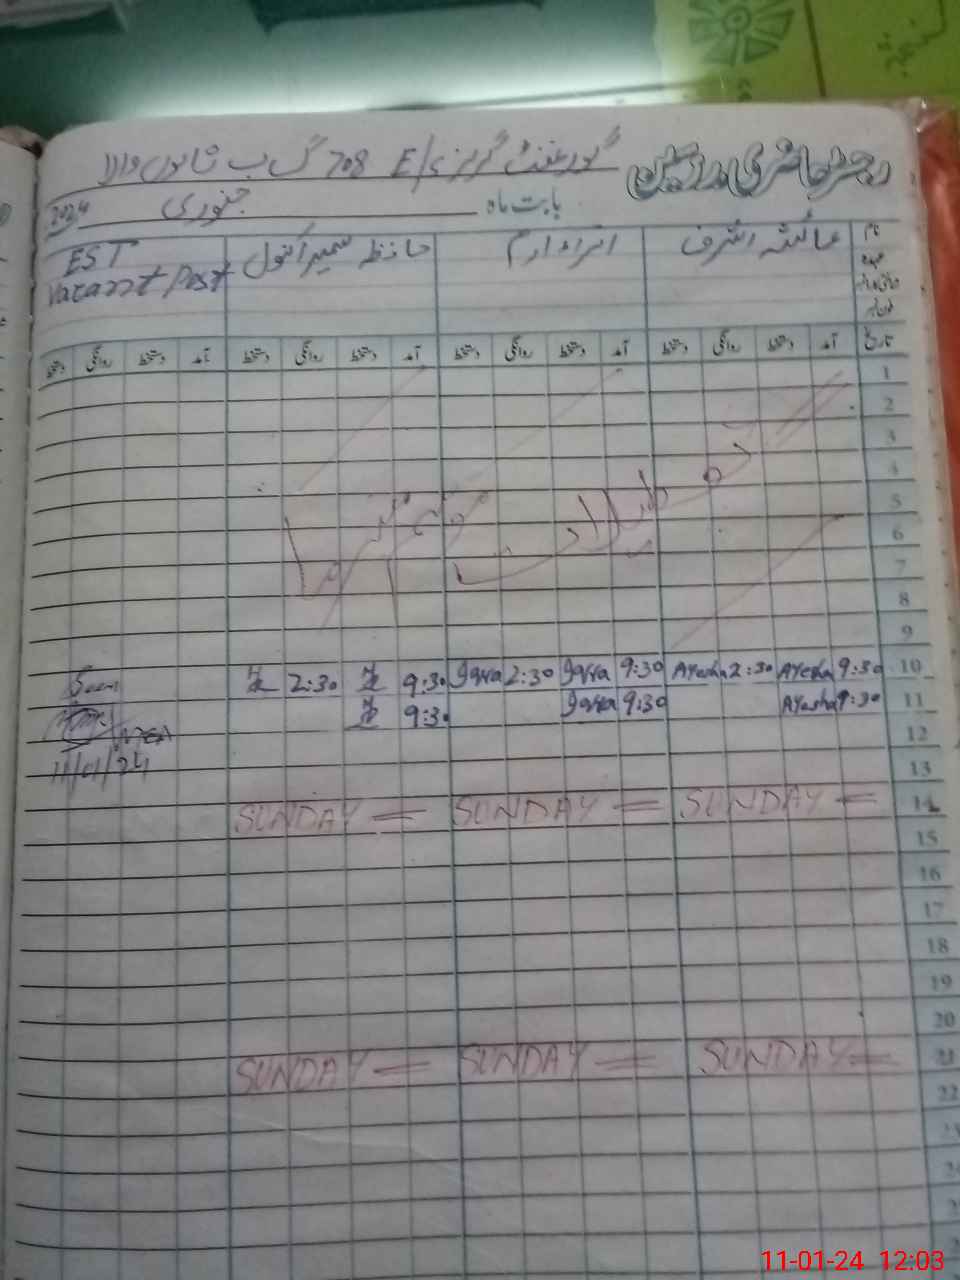 رجسٹر حاضری مدرسین
گورنمنٹ گرلز E/S 708 گ ب
بابت ماہ جنوری 2024
نام عائشہ اشرف اقراء ارم حافظہ سمیرا کنول EST
عہدہ Vacant Post
تاریخ آمد دستخط روانگی دستخط آمد دستخط روانگی دستخط آمد دستخط روانگی دستخط آمد دستخط روانگی دستخط
1
2
3
4
5
موسم سرما
6
7
8
9
10 9:30 Ayesha 2:30 Ayesha 9:30 Iqra 2:30 Iqra 9:30 2:30 Seen
11 9:30 Ayesha 9:30 Iqra 9:30
12 MEA
13 11/01/24
14 SUNDAY = SUNDAY = SUNDAY =
15
16
17
18
19
20
21 SUNDAY = SUNDAY = SUNDAY =
22
11-01-24 12:03